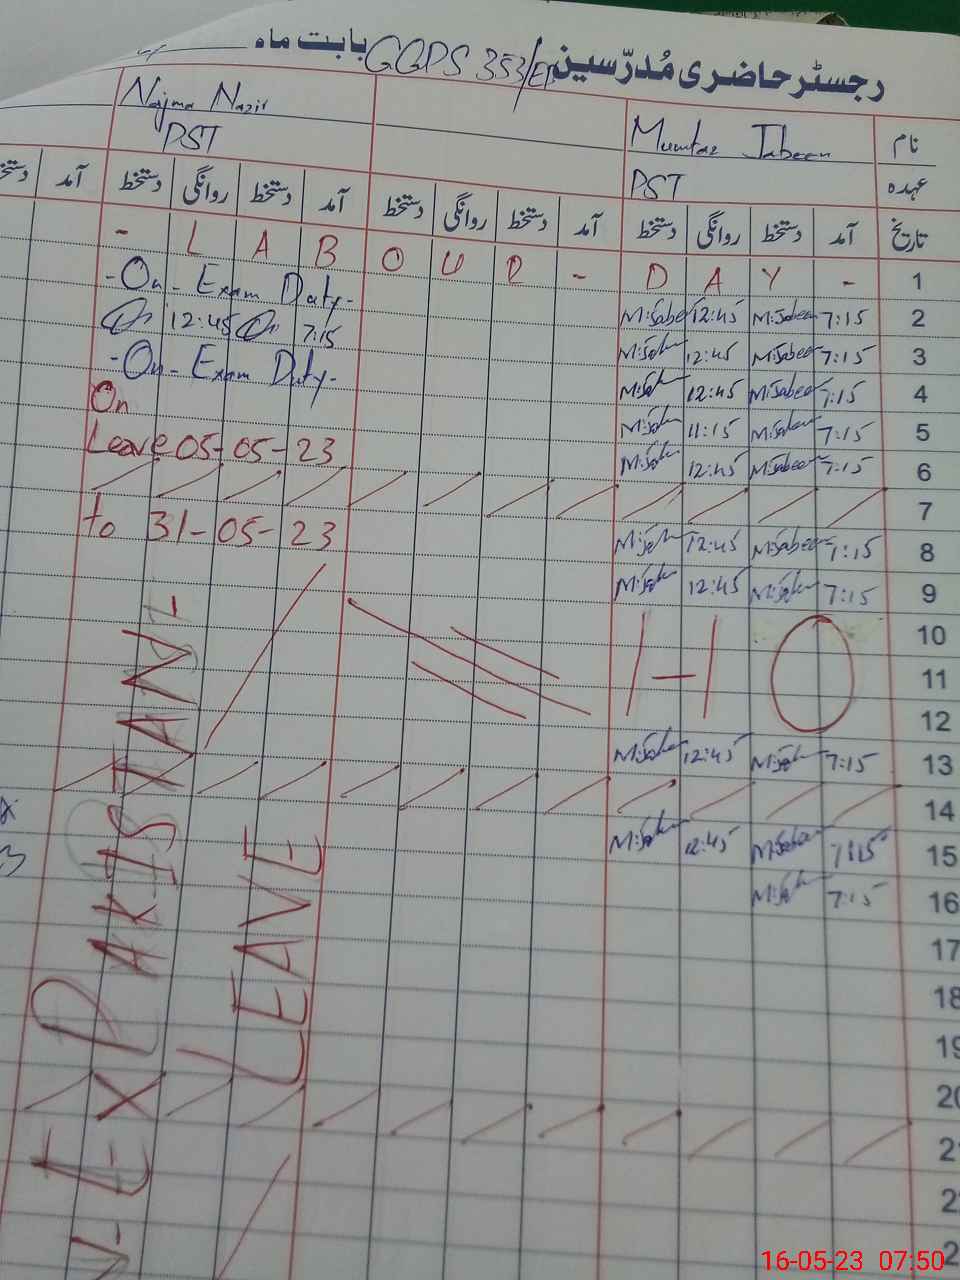 رجسٹر حاضری مُدرّسین GGPS 353/EB بابت ماہ
نام Mumtaz Jabeen Najma Nazir
عہدہ PST PST
تاریخ آمد دستخط روانگی دستخط آمد دستخط روانگی دستخط آمد دستخط روانگی دستخط آمد
- L A B O U R - D A Y - 1
-On- Exam Duty- M:Jabeen 12:45 M:Jabeen 7:15 2
12:45 7:15 12:45 M:Jabeen 7:15 3
-On- Exam Duty- 12:45 M:Jabeen 7:15 4
On 11:15 M:Jabeen 7:15 5
Leave 05-05-23 12:45 M:Jabeen 7:15 6
7
to 31-05-23 12:45 M:Jabeen 7:15 8
12:45 M:Jabeen 7:15 9
10
H O 11
12
12:45 7:15 13
14
12:45 M:Jabeen 7:15 15
7:15 16
17
18
19
20
21
22
EX PAKISTAN-
LEAVE
16-05-23 07:50